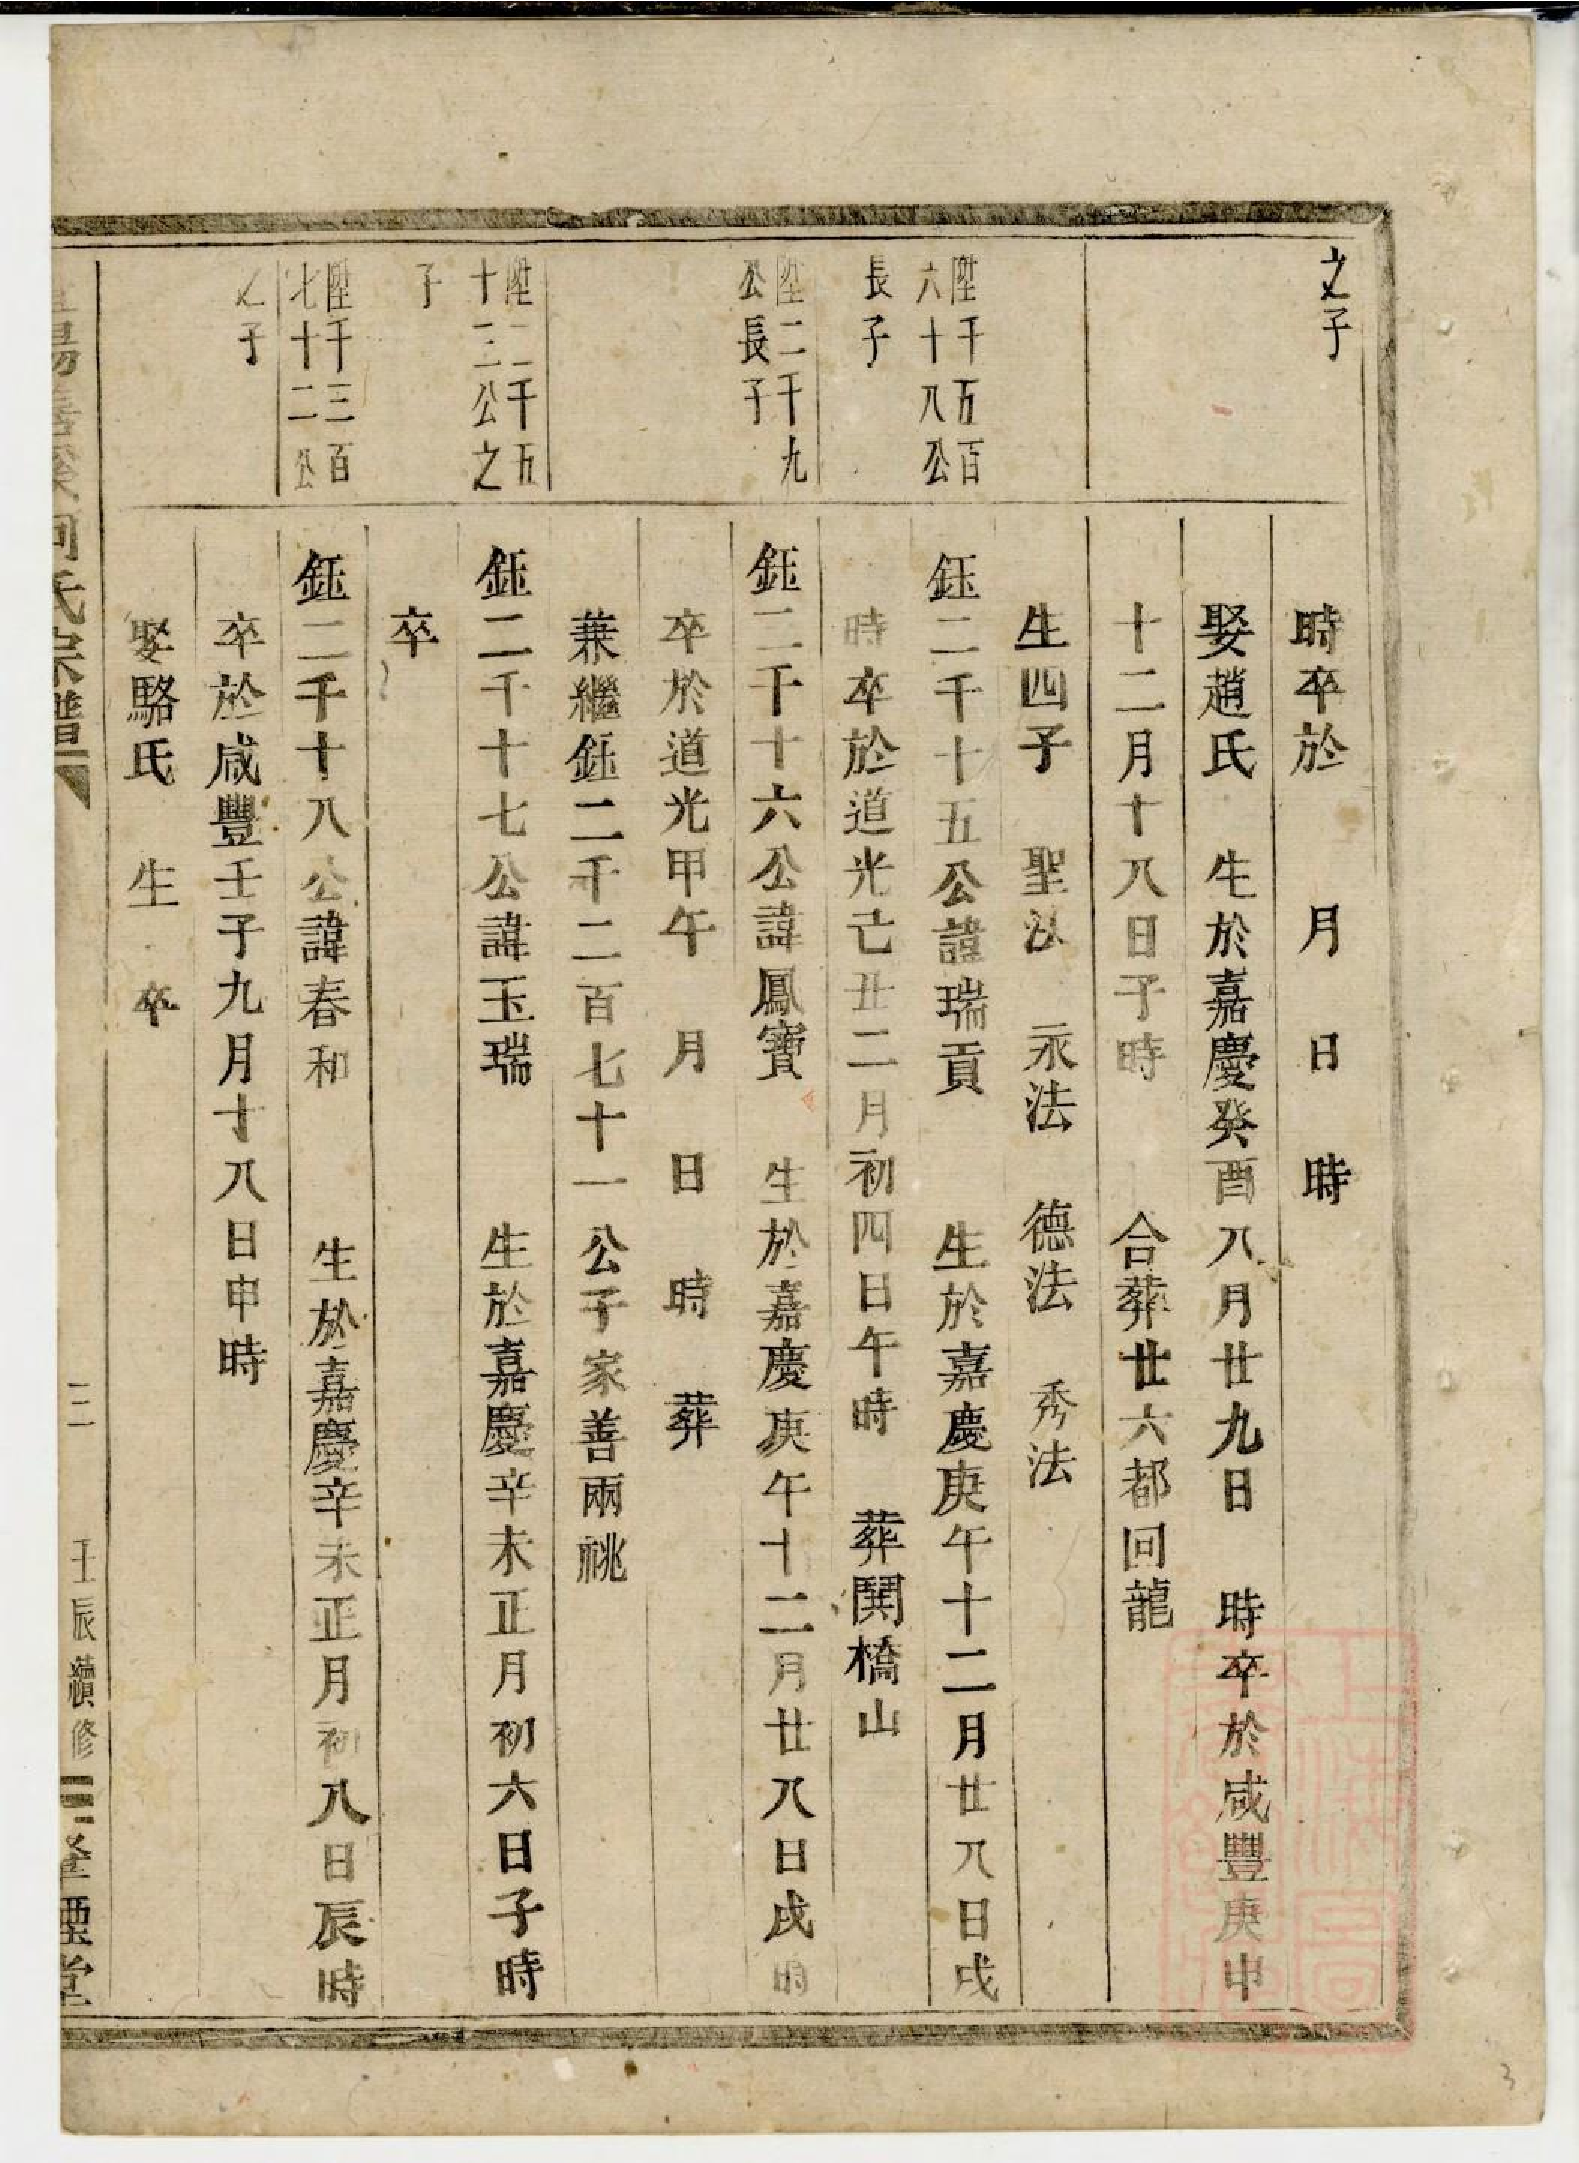 之子
時卒於　月　日　時
娶趙氏　生於嘉慶癸酉八月廿九日　時卒於咸豐庚申
十二月十八日子時　合葬廿六都回龍
生四子　聖法　永法　德法　秀法
陞千五百
六十八公
長子
鈺二千十五公諱瑞貢　生於嘉慶庚午十二月廿八日戌
時卒於道光己丑二月初四日午時　葬鬨橋山
陞二千九
公長子
鈺二千十六公諱鳳寶　生於嘉慶庚午十二月廿八日戌時
卒於道光甲午　月　日　時　葬
兼繼鈺二千二百七十一公子家善兩祧
陞二千五
十三公之
子
鈺二千十七公諱玉瑞　生於嘉慶辛未正月初六日子時
卒
陞千三百
七十二公
之子
鈺二千十八公諱春和　生於嘉慶辛未正月初八日辰時
卒於咸豐壬子九月十八日申時
娶駱氏　生　卒
何氏宗譜
三　壬辰續修
堂